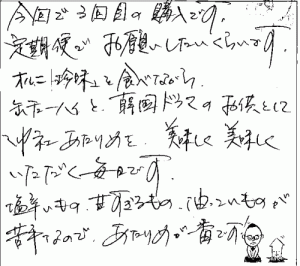 今回で3回目の購入です。
定期便でお願いしたいくらいです。
「珍味」と食べながら、
缶チューハイと、韓国ドラマのお供として
あたりめを、美味しく美味しく
いただく毎日です。
塩辛いもの、甘すぎるもの、油っこいものが
苦手なので、あたりめが一番です!